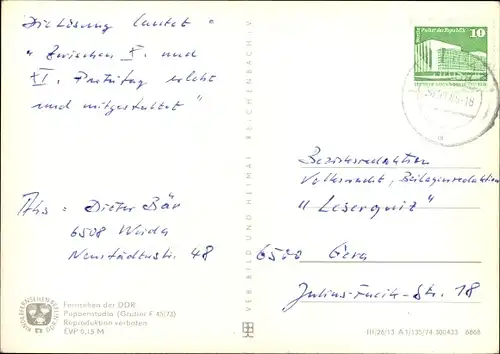 Die Lösung lautet "
" Zwischen X. und
XI. Parteitag erlebt
und mitgestaltet "
Abs = Dieter Bär
6508 Weida
Neustädterstr. 48
Fernsehen der DDR
Puppenstudio (Grußner F 45/73)
Reproduktion verboten
EVP 0,15 M
VEB BILD UND HEIMAT REICHENBACH i.V.
Palast der Republik
10
Bezirksredaktion
Volkswacht, Beilagenredaktion
"Leserquiz"
6500 Gera
Julius-Fucik-Str. 18
III/26/13 A 1/135/74 300433 6868